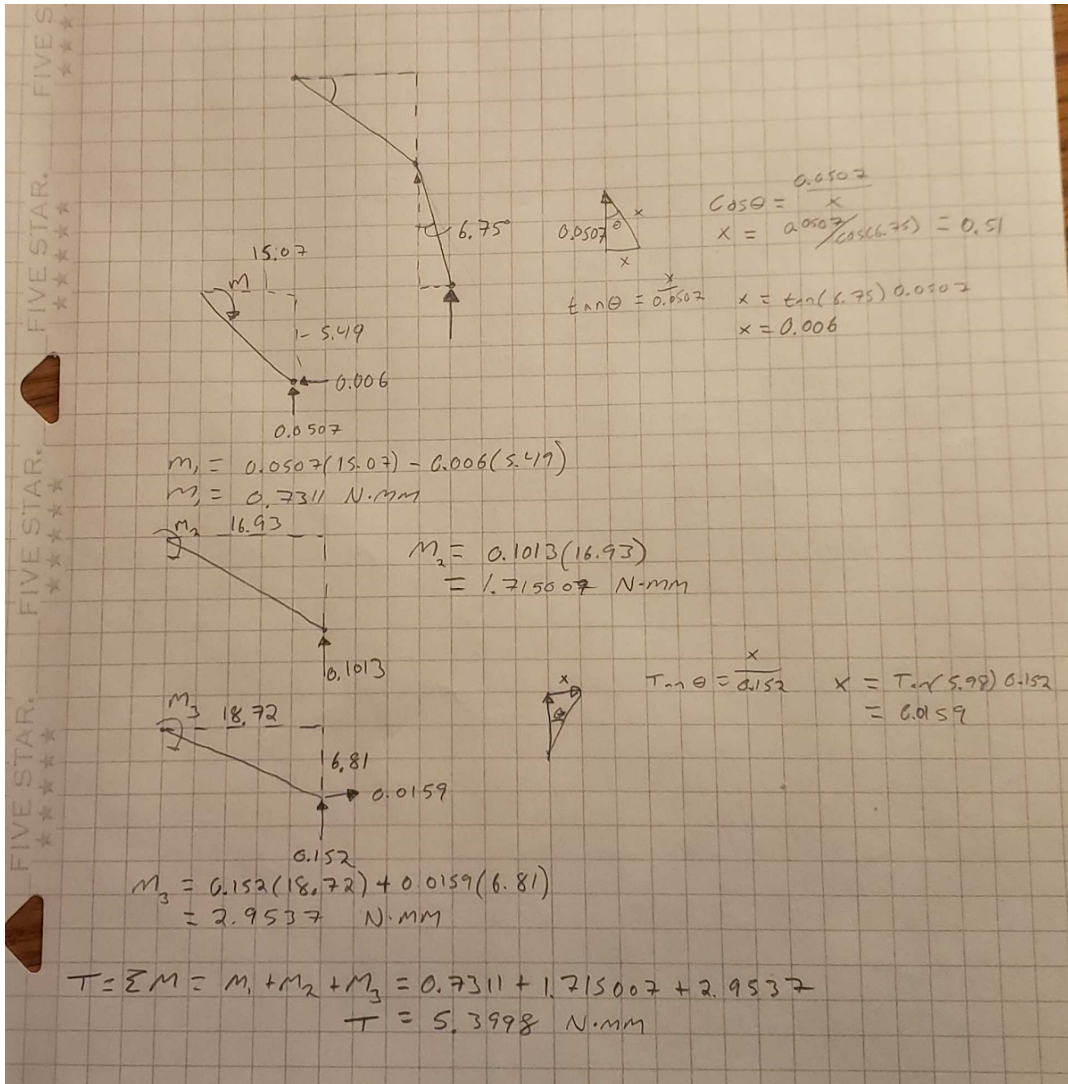 FIVE STAR.
FIVE STAR.
FIVE STAR.
FIVE S
6.75°
0.0507
θ
x
x
Cosθ = 0.0507/x
x = 0.0507/cos(6.75) = 0.51
tanθ = x/0.0507 x = tan(6.75) 0.0507
x = 0.006
15.07
M
5.49
0.006
0.0507
M₁ = 0.0507(15.07) - 0.006(5.49)
M₁ = 0.7311 N·mm
M₂ 16.93
M₂ = 0.1013(16.93)
= 1.715007 N-mm
0.1013
x
θ
Tanθ = x/0.152 x = Tan(5.98) 0.152
= 0.0159
M₃ 18.72
6.81
0.0159
0.152
M₃ = 0.152(18.72) + 0.0159(6.81)
= 2.9537 N·MM
T = ΣM = M₁ + M₂ + M₃ = 0.7311 + 1.715007 + 2.9537
T = 5.3998 N·MM